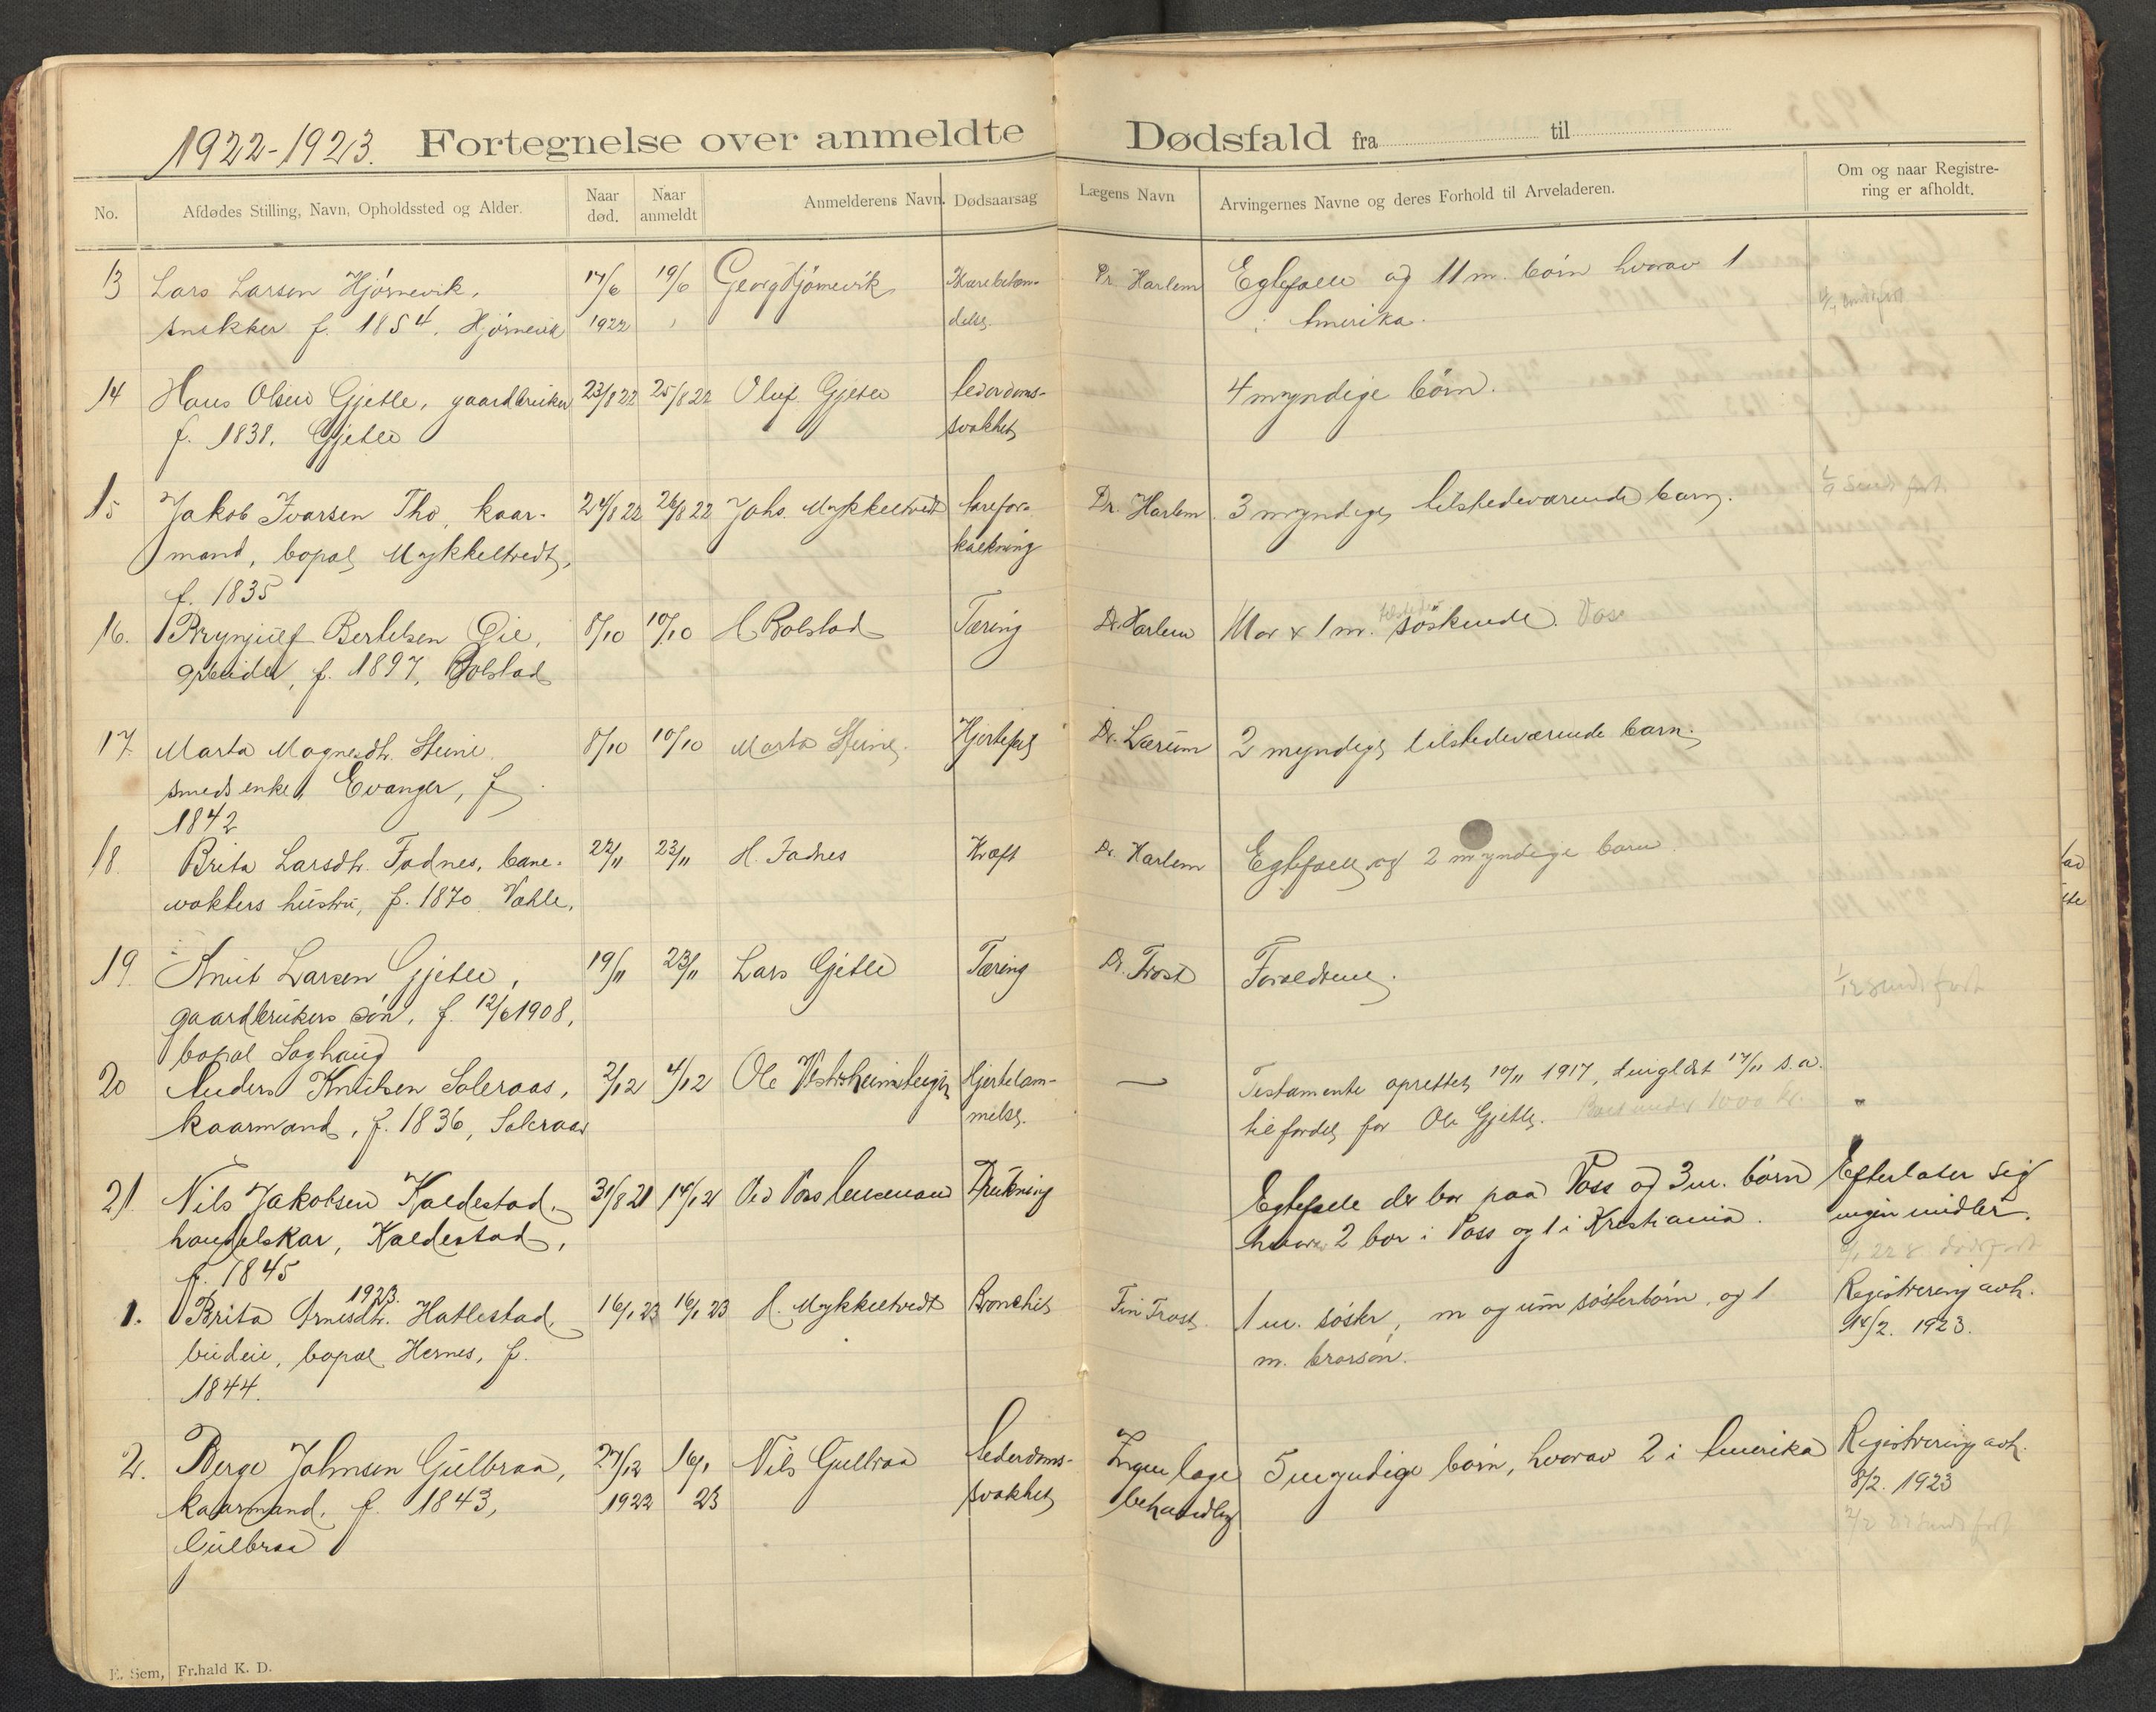 1922-1923. Fortegnelse over anmeldte Dødsfald fra til
No.
Afdødes Stilling, Navn, Opholdssted og Alder.
Naar død.
Naar anmeldt
Anmelderens Navn.
Dødsaarsag
Lægens Navn
Arvingernes Navne og deres Forhold til Arveladeren.
Om og naar Registre-
ring er afholdt.
13 Lars Larsen Hjørnevik, 17/6 19/6 Georg Hjørnevik Dr. Harlem Egtefælle og 11 m. børn hvorav 1
snekker f. 1854. Hjørnevik 1922 i Amerika.
14 Hans Olsen Gjetle, gaardbruker 23/8 22 25/8 22 Oluf Gjetle Alderdoms- 4 myndige børn.
f. 1838. Gjetle svakhet
15 Jakob Ivarsen Tho, kaar- 24/8 22 26/8 22 Johs. Mykkeltvedt Aarefor- Dr. Harlem 3 myndige tilstedeværende barn.
mand, bopæl Mykkeltvedt, kalkning
f. 1835
16. Brynjulf Bertelsen Øie, 8/10 10/10 H Bolstad Tæring Dr. Harlem Mor & 1 m. søskende. Voss
arbeider, f. 1897, Bolstad
17. Marta Magnesdtr. Steine. 8/10 10/10 Marta Steine. Hjertefeil Dr. Lærum 2 myndige tilstedeværende barn.
smeds enke, Evanger, f.
1842
18. Brita Larsdtr. Fadnes, bane- 22/11 23/11 H. Fadnes Kræft Dr. Harlem Egtefælle og 2 myndige barn.
vokters hustru, f. 1870 Vahle.
19. Knut Larsen Gjetle, 19/11 23/11 Lars Gjetle Tæring Dr. Frost Forældrene.
gaardbrukers søn, f. 12/6 1908,
bopæl Saghaug
20 Anders Knutsen Saleraas, 2/12 4/12 Ole Hjertelam- — Testamente oprettet 10/11 1917, tinglæst 17/11 s.a.
kaarmand, f. 1836, Saleraas melse. til fordel for Ole Gjetle. 1000 kr.
21 Nils Jakobsen Kaldestad, 31/8 21 14/12 21 Ved Voss lensmand Drukning Egtefælle der bor paa Voss og 3 m. børn Efterlater sig
handelskar, Kaldestad, hvorav 2 bor i Voss og 1 i Kristiania. ingen midler.
f. 1845
1923.
1. Brita Arnesdtr. Hatlestad, 16/1 23 16/1 23 H. Mykkeltvedt Bronchit Frost 1 m. søster, m og um søsterbørn, og 1 Registrering avh.
budeie, bopæl Hernes, f. m. brorsøn. 14/2. 1923.
1844.
2. Berge Johnsen Gulbraa, 27/12 16/1 Nils Gulbraa Alderdoms- Ingen læge 5 myndige børn, hvorav 2 i Amerika Registrering avh.
kaarmand, f. 1843, 1922 23 svakhet behandling 8/2. 1923
Gulbraa
E. Sem, Fr.hald K. D.